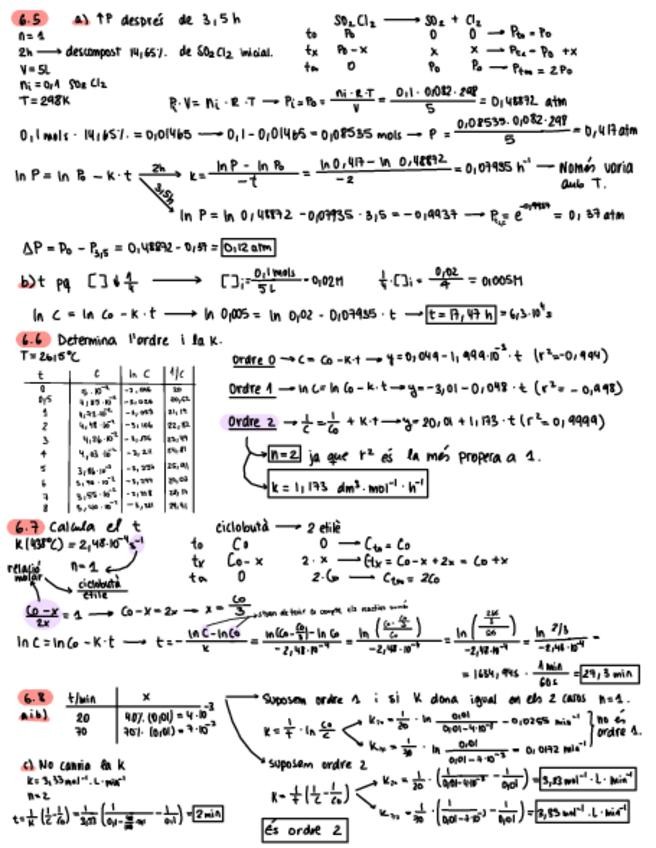 6.5 a) ↑P després de 3,5h
n=1
2h → descompost 14,65% de SO2Cl2 inicial.
V=5L
ni=0,1 SO2Cl2
T=298K
SO2Cl2 → SO2 + Cl2
to P0 0 0 → Pto = P0
tx P0-x x x → Ptx = P0 + x
t∞ 0 P0 P0 → Pt∞ = 2P0
Pi·V = ni·R·T → Pi=P0 = ni·R·T/V = 0,1·0,082·298/5 = 0,48872 atm
0,1mols · 14,65% = 0,01465 → 0,1-0,01465=0,08535 mols → P = 0,08535·0,082·298/5 = 0,417atm
ln P = ln P0 - k·t 2h → k = ln P - ln P0/-t = ln 0,417 - ln 0,48872/-2 = 0,07935 h⁻¹ → Només varia amb T.
3,5h → ln P = ln 0,48872 - 0,07935 · 3,5 = -0,9937 → P = e^-0,9937 = 0,37atm
ΔP = P0 - P3,5 = 0,48872-0,37 = 0,12 atm
b) t pq [ ] ↓ 1/4 → [ ]i = 0,1mols/5L = 0,02M 1/4·[ ]i = 0,02/4 = 0,005M
ln C = ln C0 - k·t → ln 0,005 = ln 0,02 - 0,07935 · t → t = 17,47 h = 6,3·10⁴s
6.6 Determina l'ordre i la k.
T=26,5°C
t C ln C 1/C
0 20
0,5
1
2
3
4
5
6
7
8
Ordre 0 → C = C0-k·t → y = 0,049-1,999·10⁻³·t (r²=-0,994)
Ordre 1 → ln C = ln C0 - k·t → y=-3,01-0,048·t (r²=-0,998)
Ordre 2 → 1/C = 1/C0 + k·t → y=20,01+1,173·t (r²=0,9999)
n=2 ja que r² és la més propera a 1.
k = 1,173 dm³·mol⁻¹·h⁻¹
6.7 Calcula el t
K(438°C) = 2,48·10⁻⁴s⁻¹
n=1
relació molar
ciclobutà/etilè
ciclobutà → 2 etilè
to C0 0 → Cto = C0
tx C0-x 2·x → Ctx = C0-x+2x = C0+x
t∞ 0 2·C0 → Ct∞ = 2C0
C0-x/2x = 1 → C0-x=2x → x = C0/3
ln C = ln C0 - k·t → t = - ln C - ln C0/k = ln(C0-C0/3)-ln C0/-2,48·10⁻⁴ = ln 2/3/-2,48·10⁻⁴ =
= 1634,94s · 1min/60s = 27,3 min
6.8 t/min x
a i b) 20 40% (0,01) = 4·10⁻³
70 70% (0,01) = 7·10⁻³
Suposem ordre 1 i si k dona igual en els 2 casos n=1.
k = 1/t · ln C0/C
k20 = 1/20 · ln 0,01/0,01-4·10⁻³ = 0,0255 min⁻¹
ln 0,01/0,01-7·10⁻³ = 0,0172 min⁻¹
no és ordre 1.
suposem ordre 2
k = 1/t (1/C - 1/C0)
k20 = 1/20 · (1/0,01-4·10⁻³ - 1/0,01) = 3,33 mol⁻¹·L·min⁻¹
(1/0,01-7·10⁻³ - 1/0,01) = 3,33 mol⁻¹·L·min⁻¹
és ordre 2
c) No canvia la k
k = 3,33 mol⁻¹·L·min⁻¹
n=2
t = 1/k (1/C - 1/C0) = 2min